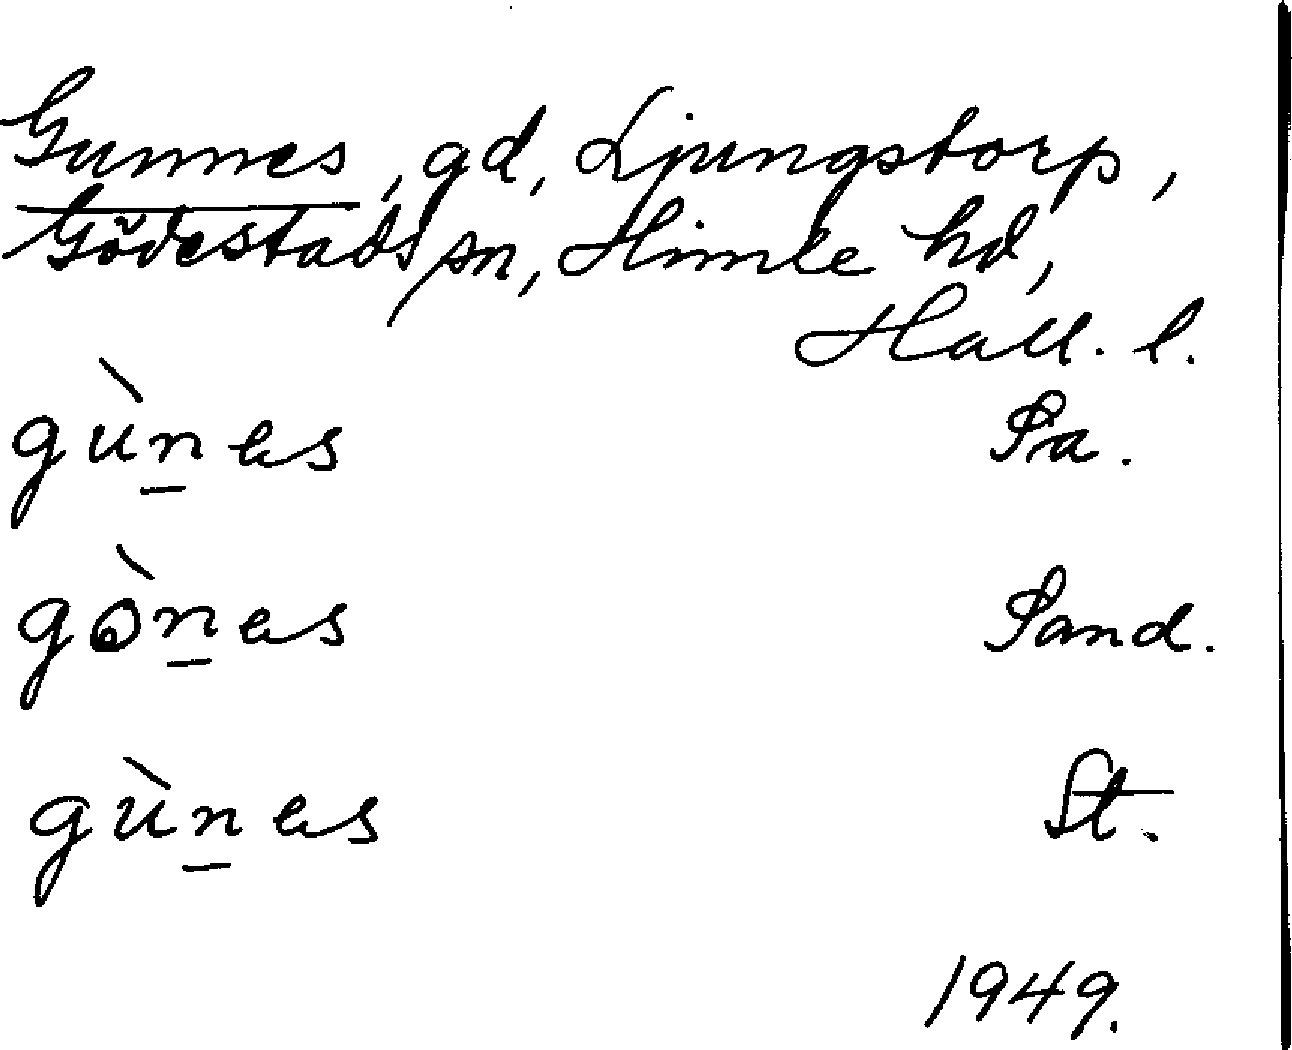 Gunnes, gd, Ljungstorp,
Gödestads sn, Himle hd,
Hall. l.
gùn̲es Sa.
gòn̲es Sand.
gùn̲es St.
1949.